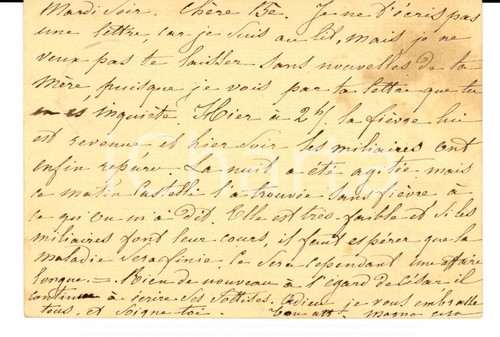 Mardi soir. Chère Be. Je ne t'écris pas
une lettre, car je suis au lit, mais je ne
veux pas te laisser sans nouvelles de ta
mère puisque je vois par ta lettre que tu
es inquiète. Hier à 2h la fièvre lui
est revenue et hier soir les miliaires ont
enfin reparu. La nuit a été agitée, mais
ce matin Castelli l'a trouvée sans fièvre à
ce qu'on m'a dit. Elle est très faible et si les
miliaires font leur cours, il faut espérer que la
maladie sera finie. Ce sera cependant une affaire
longue. = Rien de nouveau à l'égard de César il
continue à écrire ses sottises. Adieu je vous embrasse
tous, et soigne toi. Ton att.